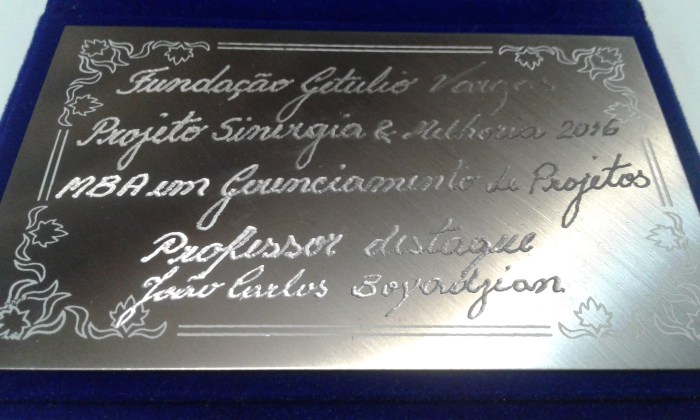 Fundação Getúlio Vargas
Projeto Sinergia & Melhoria 2016
MBA em Gerenciamento de Projetos
Professor destaque
João Carlos Boyadjian